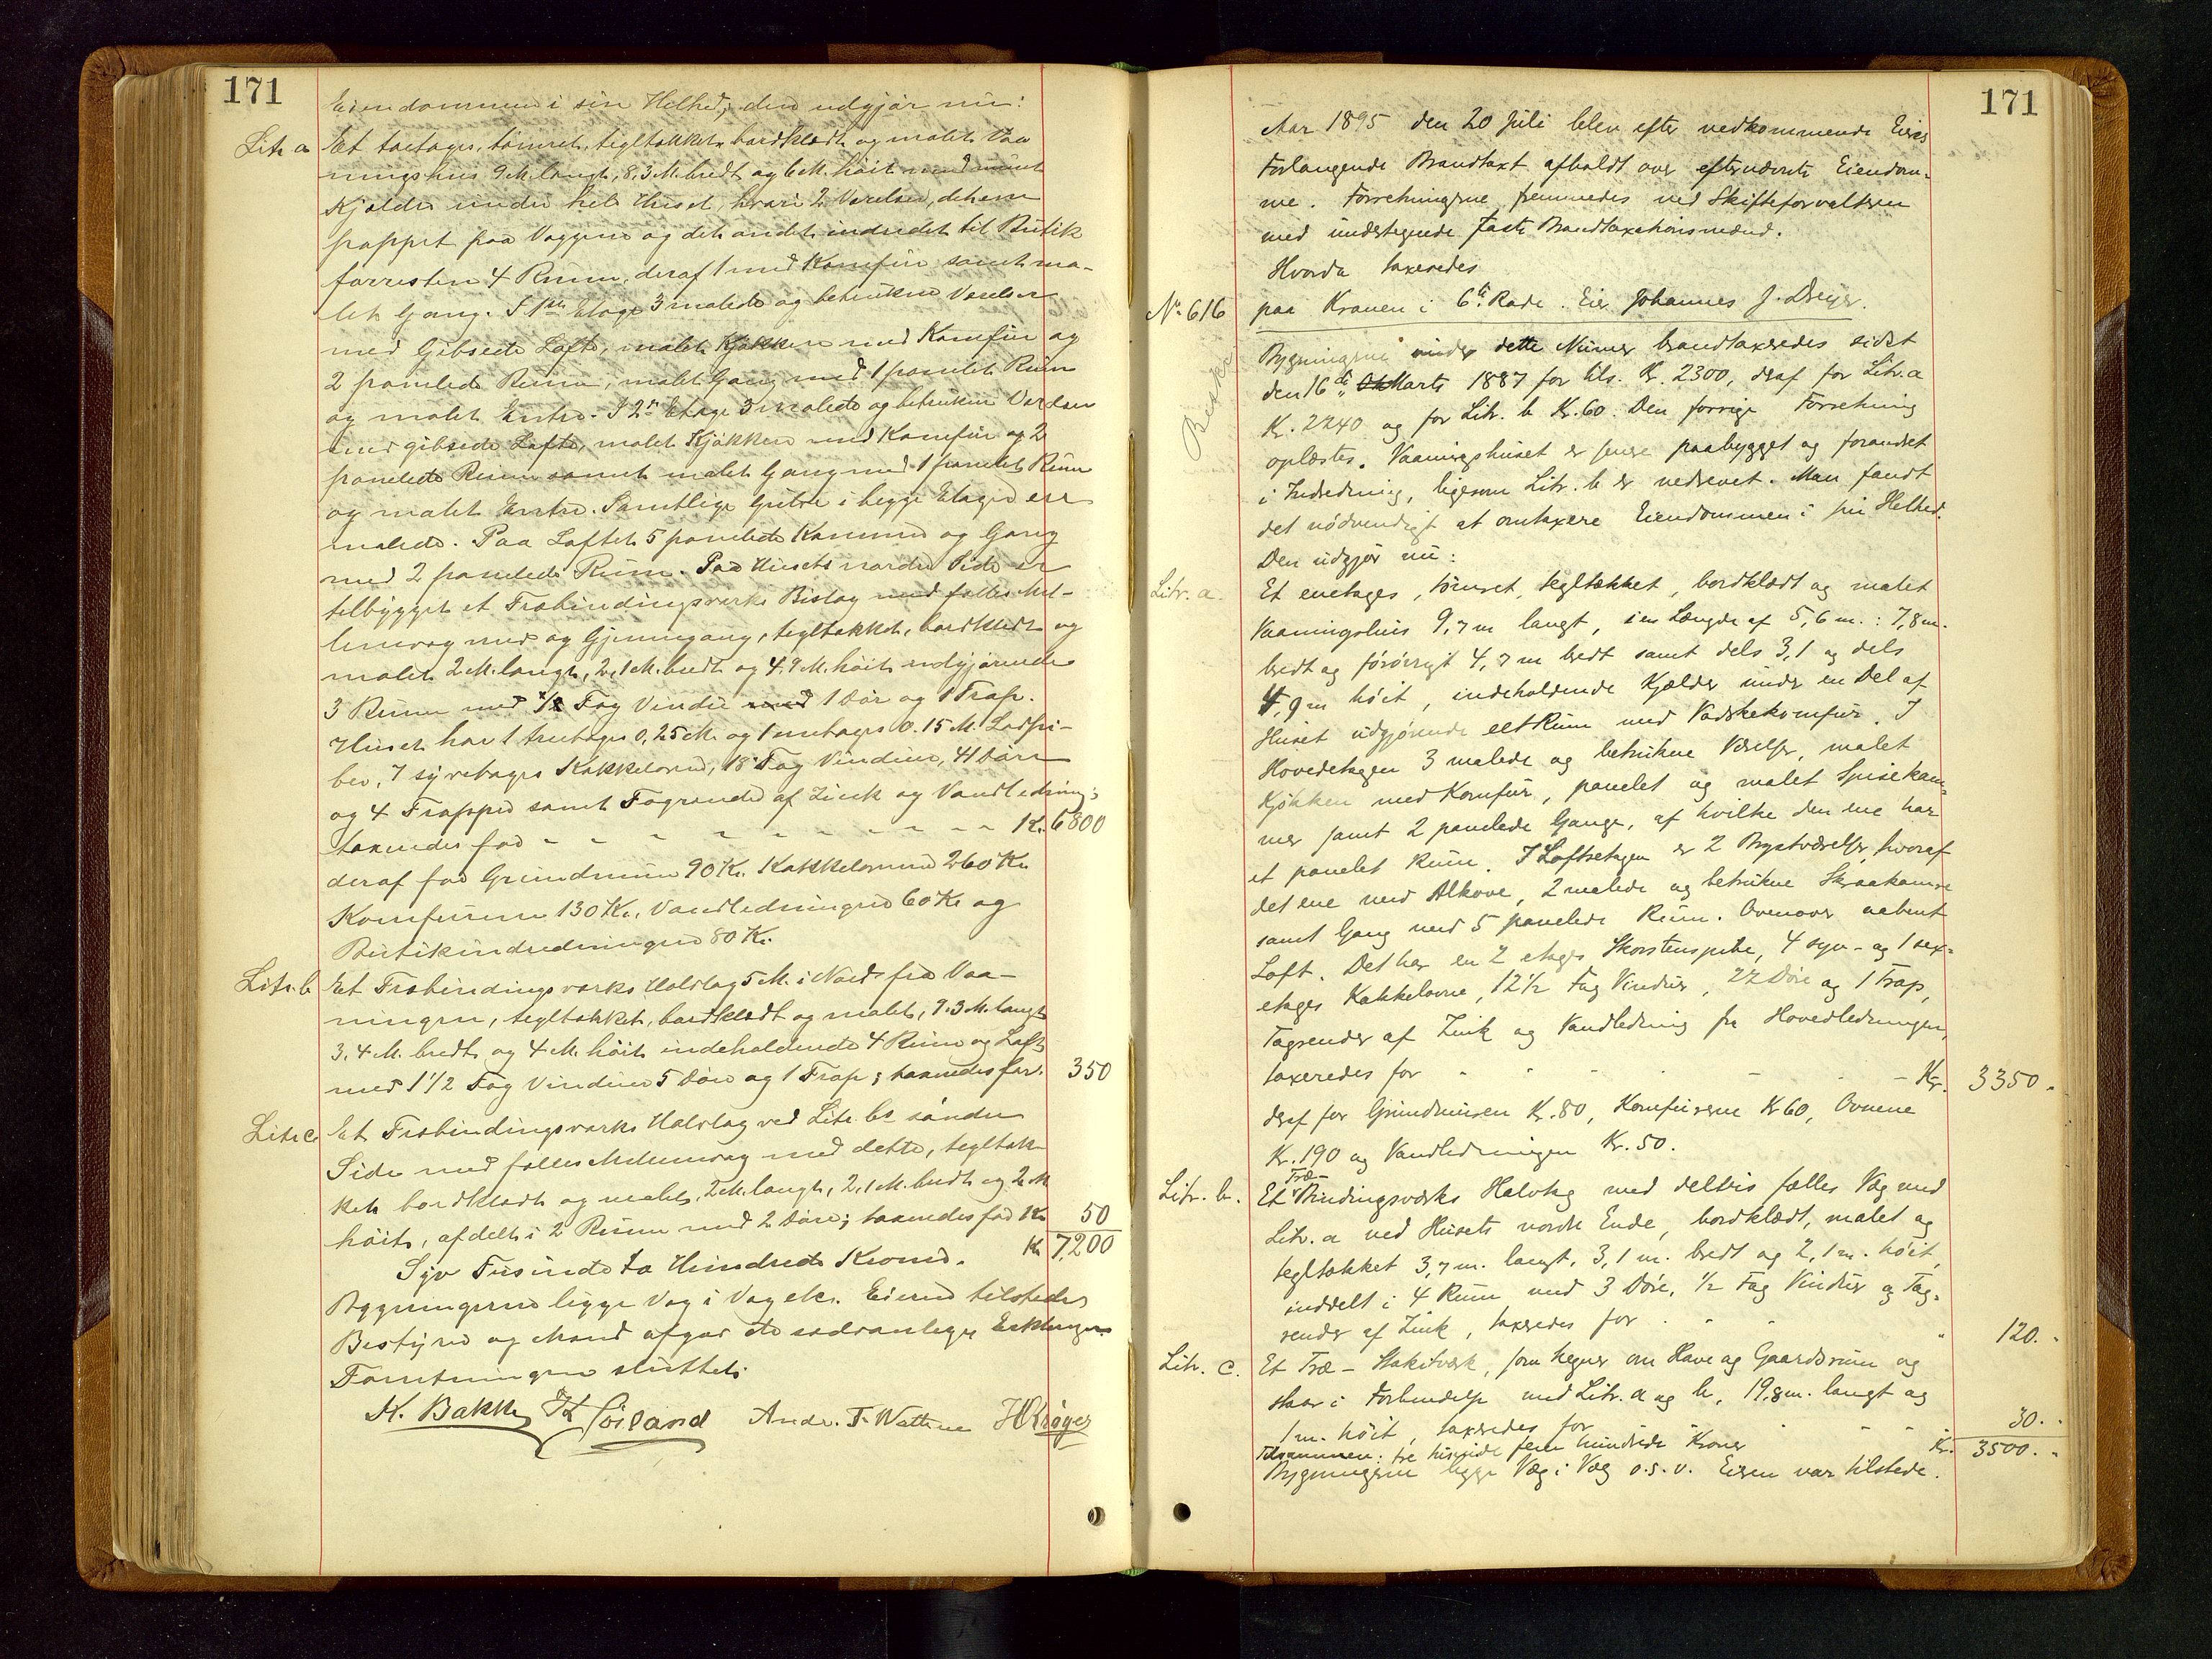 171
Eiendommen i sin Helhed; den udgjør nu:
Litr a Et toetages, tømret, tegltækket, bordklædt og malet Vaa
ningshus 9 M. langt, 8,3 M. bredt og 6 M. høit med muret
Kjælder under hele Huset, hvori 2 Værelser, det ene
pappet paa Væggene og det andet indredet til Butik
forresten 4 Rum, deraf 1 med Komfur samt ma-
let Gang. I 1ste Etage 3 malede og betrukne Værelser
med gibsede Lofte, malet Kjøkken med Komfur og
2 panelede Rum, malet Gang med 1 panelet Rum
og malet Entre. I 2den Etage 3 malede og betrukne Værelser
med gibsede Lofte, malet Kjøkken med Komfur og 2
panelede Rum samt malet Gang med 1 panelet Rum
og malet Entre. Samtlige Gulve i begge Etager ere
malede. Paa Loftet 5 panelede Kamre og Gang
med 2 panelede Rum. Paa Husets nordre Side er
tilbygget et Træbindingsværks Bislag med fælles Mel-
lemvæg med og Gjennemgang, tegltækket, bordklædt og
malet 2 M. langt, 2,1 M. bredt og 4,9 M. høit udgjørende
3 Rum med 1/2 Fag Vindu med 1 Dør og 1 Trap.
Huset har 1 treetages 0,25 M. og 1 enetages 0.15 M. Lodpi-
ber, 7 syvetages Kakkelovne, 18 Fag Vinduer, 41 Døre
og 4 Trapper samt Tagrender af Zink og Vandledning;
taxeredes for - - - - - - - - - Kr. 6800
deraf for Grundmuren 90 Kr. Kakkelovnene 260 Kr.
Komfurerne 130 Kr., Vandledningen 60 Kr og
Butikindredningen 80 Kr.
Litr. b Et Træbindingsværks Halvtag 5 M. i Nord fra Vaa-
ningen, tegltækket, bordklædt og malet, 9.3 M. langt
3.4 M. bredt og 4 M. høit indeholdende 4 Rum og Loft
med 1 1/2 Fag Vinduer 5 Døre og 1 Trap; taxeredes for. 350
Litr c Et Træbindingsværks Halvtag ved Litr. bs søndre
Side med fælles Mellemvæg med dette, tegltæk-
ket bordklædt og malet, 2 M. langt, 2,1 M. bredt og 2 M
høit, afdelt i 2 Rum med 2 Døre; taxeredes for Kr 50
Syv Tusinde to Hundrede Kroner. Kr 7,200
Bygningerne ligge Væg i Væg etc. Eieren tilstede
Bestyrer og Mænd afgav de sædvanlige Erklæringer
Forretningen sluttet.
K. Bakke Andr. T. Wattne H Krøger
171
Aar 1895 den 20 Juli blev efter vedkommende Eiers
Forlangende Brandtaxt afholdt over efternævnte Eiendom-
me. Forretningerne fremmedes ved Skifteforvalteren
med undertegnede faste Brandtaxationsmænd.
Hvorda taxeredes
No 616 paa Kranen i 6te Rode. Eier Johannes J. Dreyer.
Bygningerne under dette Numer brandtaxeredes sidst
den 16de Marts 1887 for tils. Kr. 2300, deraf for Litr. a
Kr. 2240 og for Litr. b Kr. 60. Den forrige Forretning
oplæstes. Vaaningshuset er senere paabygget og forandret
i Indredning, ligesom Litr. b er nedrevet. Man fandt
det nødvendigt at omtaxere Eiendommen i sin Helhed.
Den udgjør nu:
Litr. a. Et enetages, tømret, tegltækket, bordklædt og malet
Vaaningshus 9,7 m langt, i en Længde af 5,6 m.: 7,8 m.
bredt og forøvrigt 4,7 m bredt samt dels 3,1 og dels
4,9 m høit, indeholdende Kjælder under en Del af
Huset udgjørende eet Rum med Vadskekomfur. I
Hovedetagen 3 malede og betrukne Værelser, malet
Kjøkken med Komfur, panelet og malet Spisekam-
mer samt 2 panelede Gange, af hvilke den ene har
et panelet Rum. I Loftsetagen er 2 Brystværelser, hvoraf
det ene med Alkove, 2 malede og betrukne Skraakamre
samt Gang med 5 panelede Rum. Ovenover aabent
Loft. Det har en 2 etages Skorstenspibe, 4 syv- og 1 sex-
etages Kakkelovne, 12 1/2 Fag Vinduer, 22 Døre og 1 Trap,
Tagrender af Zink og Vandledning fra Hovedledningen,
taxeredes for - - - - Kr. 3350.
deraf for Grundmuren Kr. 80, Komfurerne Kr 60, Ovnene
Kr. 190 og Vandledningen Kr. 50.
Litr. b. Et Træ-Bindingsværks Halvtag med deltvis fælles Væg med
Litr. a ved Husets nordre Ende, bordklædt, malet og
tegltækket 3,7 m. langt, 3,1 m. bredt og 2,1 m. høit,
inddelt i 4 Rum med 3 Døre, 1/2 Fag Vinduer og Tag-
render af Zink, taxeredes for . . . " 120.
Litr. c. Et Træ-Stakitværk, som hegner om Have og Gaardsrum og
staar i Forbindelse med Litr. a og b, 19,8 m. langt og
1 m. høit, taxeredes for - - - 30.
Tilsammen: tre tusinde fem hundrede Kroner Kr. 3500.
Bygningerne ligge Væg i Væg o.s.v. Eieren var tilstede.